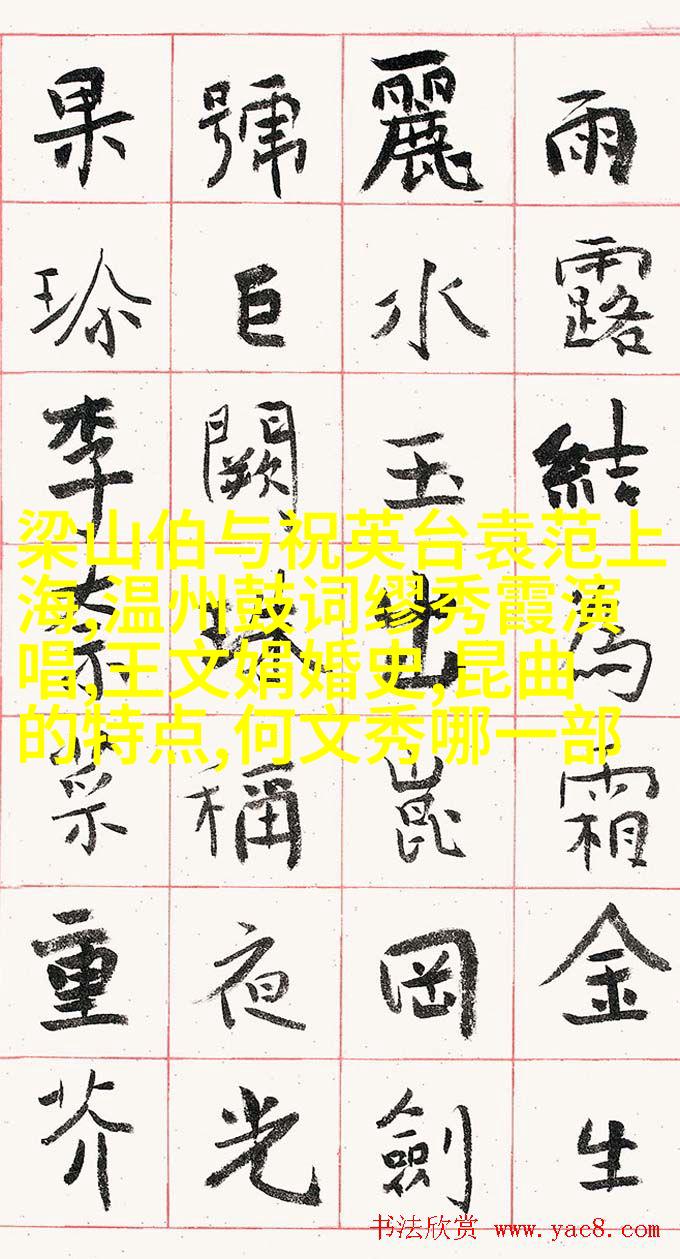 雨露結為霜金生
麗水玉出崑岡劍
號巨闕珠稱夜光
果珎李柰菜重芥
梁山伯与祝英台袁范上
海,温州鼓词缪秀霞演
唱,王文娟婚史,昆曲
的特点,何文秀哪一部
书法欣赏 www.yac8.com